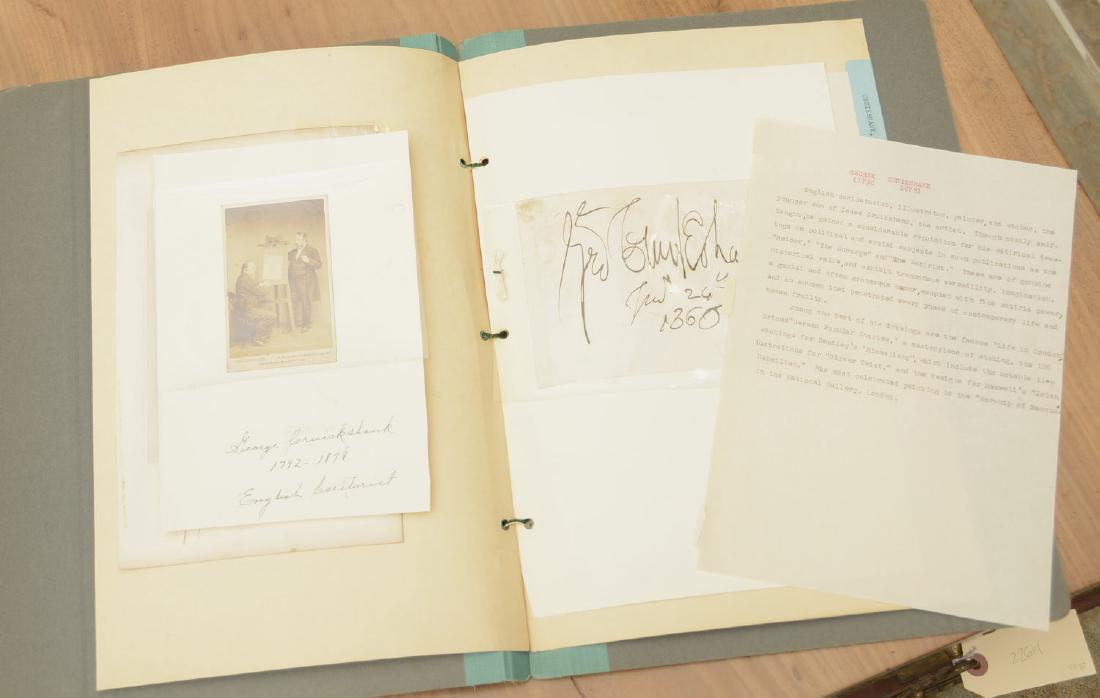 George Cruickshank
1792-1878
English
Geo Cruiksha
24
1860
CRUIKSHANK,
GEORGE CRUIKSHANK
(1792 1878)
English caricaturist, illustrator, painter, and etcher, the
younger son of Isaac Cruikshank, the artist. Though mostly self-
taught, he gained a considerable reputation for his satirical draw-
ings on political and social subjects in such publications as the
"Meteor," "The Scourge" and "The Satirist." These are of genuine
historical value, and exhibit tremendous versatility, imagination,
a genial and often grotesque humor, coupled with fine satiric power,
and an acumen that penetrated every phase of contemporary life and
human frailty.
Among the best of his drawings are the famous "Life in London,"
"German Popular Stories," a masterpiece of etching, the 126
etchings for Bentley's "Miscellany", which include the notable ill-
ustrations for "Oliver Twist," and the designs for Maxwell's "Irish
Rebellion." His most celebrated painting is the "Worship of Bacchus"
in the National Gallery, London.